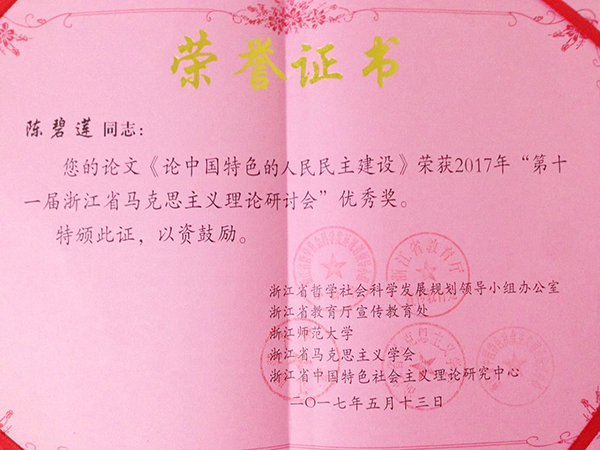 荣誉证书
陈碧莲 同志：
您的论文《论中国特色的人民民主建设》荣获2017年“第十
一届浙江省马克思主义理论研讨会”优秀奖。
特颁此证，以资鼓励。
浙江省哲学社会科学发展规划领导小组办公室
浙江省教育厅宣传教育处
浙江师范大学
浙江省马克思主义学会
浙江省中国特色社会主义理论研究中心
二〇一七年五月十三日
浙江省教育厅